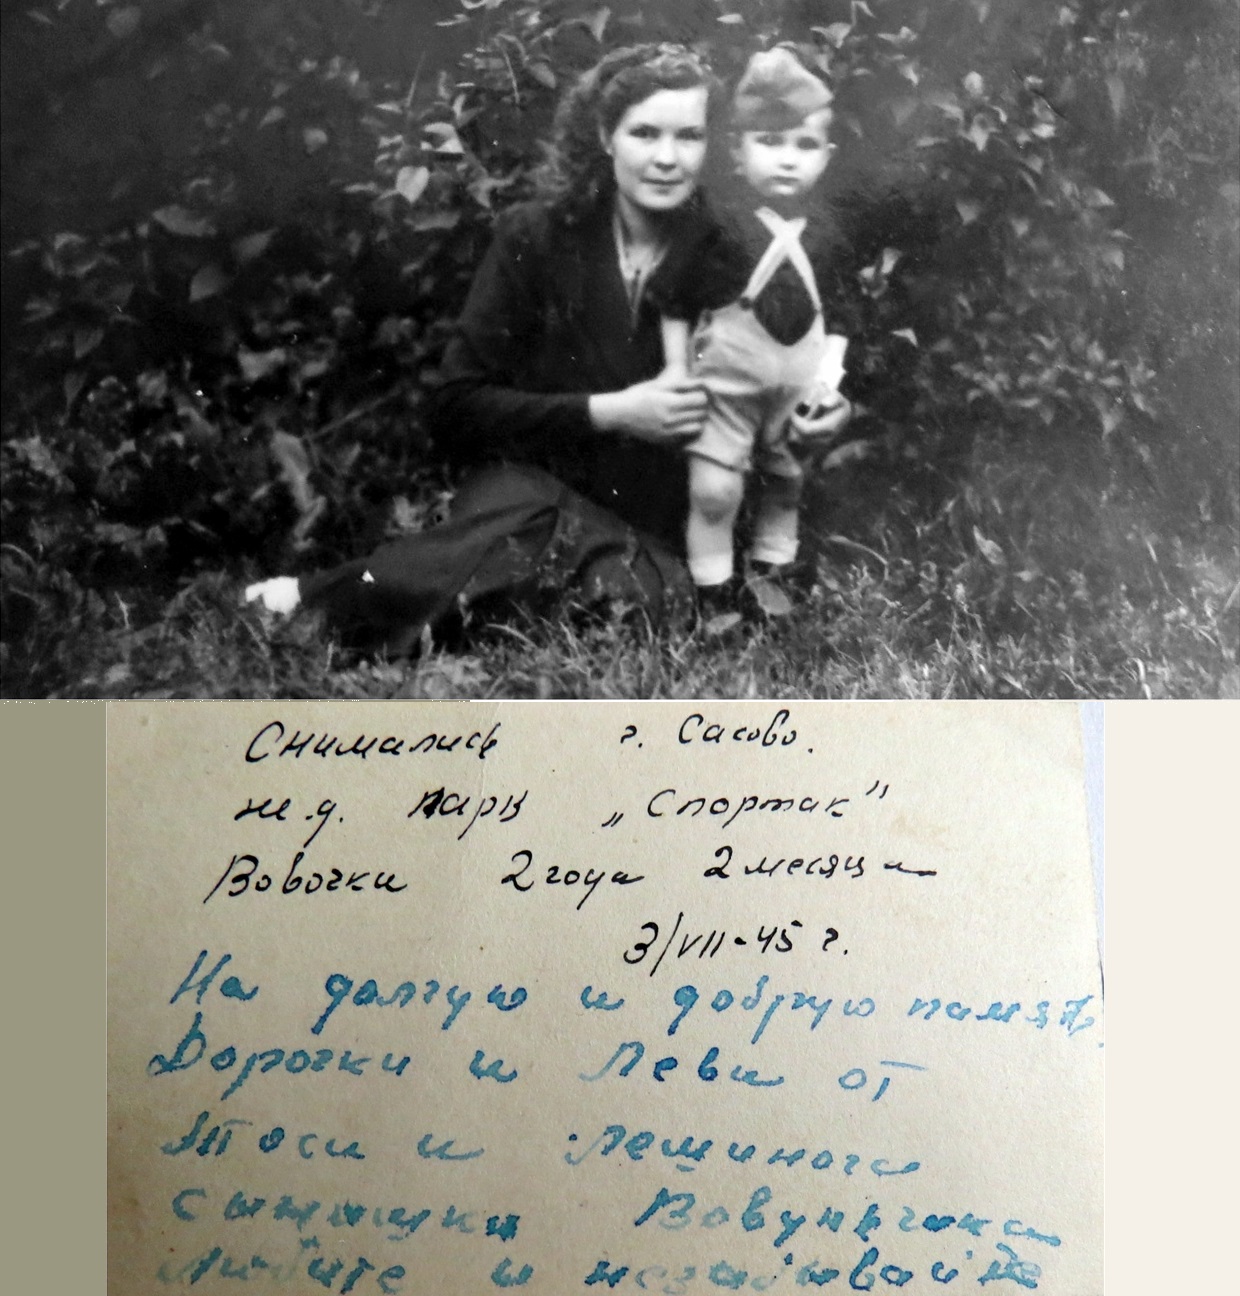 Снимались г. Сасово.
ж.д. парк „Спортак"
Вовочки 2 года 2 месяца
3/VII-45 г.
На долгую и добрую память
Дорочки и Леви от
Таси и Лешиного
сынишки Вовунчика
Любите и незабывайте